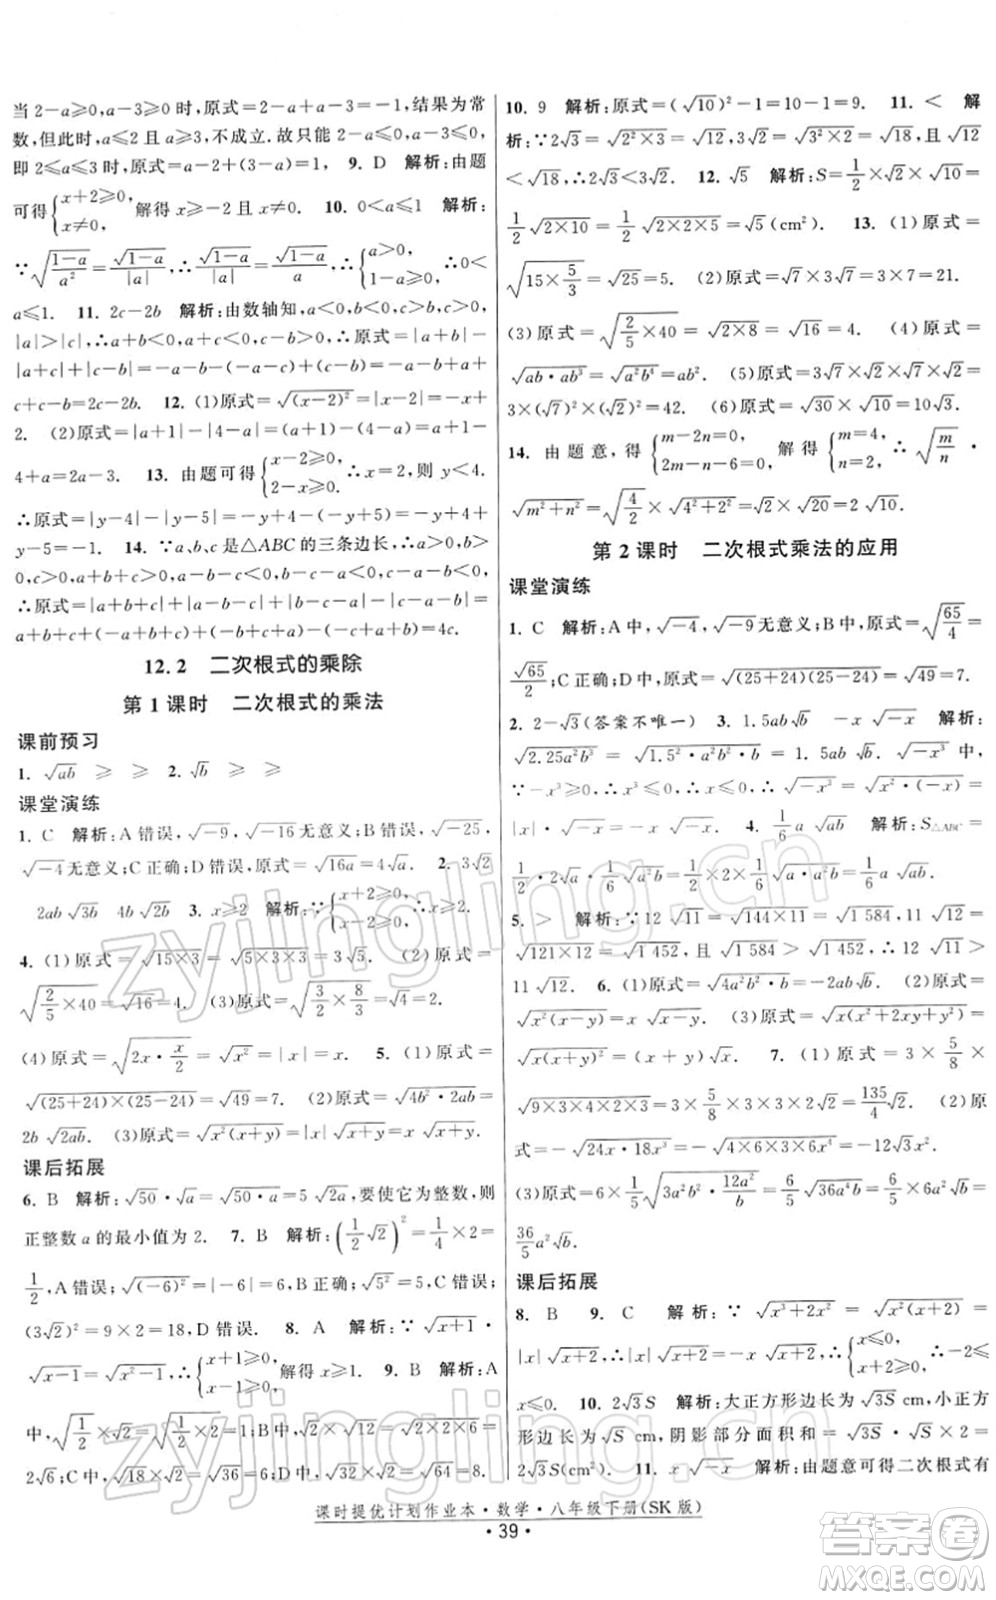 当 2-a≥0,a-3≥0 时,原式=2-a+a-3=-1,结果为常
数,但此时,a≤2 且 a≥3,不成立.故只能 2-a≤0,a-3≤0,
即 2≤a≤3 时,原式=a-2+(3-a)=1, 9. D 解析:由题
可得{x+2≥0, x≠0, 解得 x≥-2 且 x≠0. 10. 0<a≤1 解析:
∵√((1-a)/a²)=√(1-a)/|a|,∴√(1-a)/|a|=√(1-a)/a.∴{a>0, 1-a≥0. ∴0<
a≤1. 11. 2c-2b 解析:由数轴知,a<0,b<0,c>b,c>0,
|a|>|c|,∴a+b<0,a+c<0,c-b>0,∴原式=|a+b|-
|a+c|+|c-b|=-a-b-(-a-c)+(c-b)=-a-b+a+
c+c-b=2c-2b. 12. (1)原式=√((x-2)²)=|x-2|=x-
2. (2)原式=|a+1|-|4-a|=(a+1)-(4-a)=a+1-
4+a=2a-3. 13. 由题可得{x-2≥0, 2-x≥0. ∴x=2,则 y<4.
∴原式=|y-4|-|y-5|=-(y-4)+(y-5)=-y+4+
y-5=-1. 14. ∵a、b、c 是△ABC 的三条边长,∴a>0,b>
0,c>0,b+c>a,a+b>c,a+c>b,∴原式=|a+b+c|-
|a-b-c|+|a+b-c|-|b-a-c|=
a+b+c+(a-b-c)+(a+b-c)+(b-a-c)=4c.
12.2 二次根式的乘除
第 1 课时 二次根式的乘法
课前预习
1. √(ab) ≥ ≥ 2. √b ≥ ≥
课堂演练
1. C 解析:A 错误,√-9,√-16无意义;B 错误,√-25,
√-4无意义;C 正确;D 错误,原式=√(16a)=4√a. 2. 3√2
2ab√(3b) 4b√(2ab) 3. x≥2 解析:∵{x+2≥0, x-2≥0. ∴x≥2.
4. (1)原式=√(15×3)=√(5×3×3)=3√5. (2)原式=
√(2/5×40)=√16=4. (3)原式=√(3/2×8/3)=√4=2.
(4)原式=√(2x·x/2)=√(x²)=|x|=x. 5. (1)原式=
√((25+24)×(25-24))=√49=7. (2)原式=√(4b²·2ab)=
2b√(2ab). (3)原式=√(x²(x+y))=|x|√(x+y)=x√(x+y).
课后拓展
6. B 解析:√50·√a=√(50·a)=5√(2a),要使它为整数,则
正整数 a 的最小值为 2. 7. B 解析:(1/2√2)²=1/4×2=
1/2,A 错误;√((-6)²)=|-6|=6,B 正确;√(5²)=5,C 错误;
(3√2)²=9×2=18,D 错误. 8. A 解析:∵√(x+1)·
√(x-1)=√(x²-1),∴{x+1≥0, x-1≥0, 解得 x≥1. 9. B 解析:A
中,√(1/2)×√2=√(1/2×2)=1;B 中,√2×√2×√6=√(2×2×6)=
2√6;C 中,√18×√2=√36=6;D 中,√32×√2=√64=8.
10. 9 解析:原式=(√10)²-1=10-1=9. 11. < 解
析:∵2√3=√(2²×3)=√12,3√2=√(3²×2)=√18,且√12
<√18,∴2√3<3√2. 12. √5 解析:S=1/2×√2×√10=
1/2√(2×10)=1/2√(2×2×5)=√5(cm²). 13. (1)原式=
√(15×5/3)=√25=5. (2)原式=√7×3√7=3×7=21.
(3)原式=√(2/5×40)=√(2×8)=√16=4. (4)原式=
√(ab·ab³)=√(a²b⁴)=ab². (5)原式=3√7×√2×√7×√2=
3×(√7)²×(√2)²=42. (6)原式=√30×√10=10√3.
14. 由题意,得{m-2n=0, 2m-n-6=0, 解得{m=4, n=2, ∴√(m/n)·
√(m²+n²)=√(4/2)×√(4²+2²)=√2×√20=2√10.
第 2 课时 二次根式乘法的应用
课堂演练
1. C 解析:A 中,√-4,√-9无意义;B 中,原式=√(65/4)=
√65/2;C 正确;D 中,原式=√((25+24)(25-24))=√49=7.
2. 2-√3(答案不唯一) 3. 1.5ab√b -x√-x 解析:
√(2.25a²b³)=√(1.5²·a²b²·b)=1.5ab√b;√(-x³)中,
∵-x³≥0,∴x≤0,∴√(-x³)=√(x²·(-x))=
|x|·√-x=-x√-x. 4. 1/6a√(ab) 解析:S△ABC=
1/2·√a·1/3√(a²b)=1/6√(a·a²b)=1/6√(a²·ab)=1/6a√(ab).
5. > 解析:∵12√11=√(144×11)=√1584,11√12=
√(121×12)=√1452,且√1584>√1452,∴12√11>
11√12. 6. (1)原式=√(4a²b²·b)=-2ab√b. (2)原式=
√(x²(x-y))=x√(x-y). (3)原式=√(x(x²+2xy+y²))=
√(x(x+y)²)=(x+y)√x. 7. (1)原式=3×5/8×
√(9×3×4×2×3)=3×5/8×3×3×2√2=135/4√2. (2)原
式=-√(24x·18x³)=-√(4×6×3×6x⁴)=-12√3x².
(3)原式=6×1/5√(3a³b·12a²/b)=6/5√(36a⁴b)=6/5×6a²√b=
36/5a²√b.
课后拓展
8. B 9. C 解析:∵√(x³+2x²)=√(x²(x+2))=
|x|√(x+2)=-x√(x+2),∴{x≤0, x+2≥0, ∴-2≤
x≤0. 10. 2√3S 解析:大正方形边长为√(3S)cm,小正方
形边长为√S cm,阴影部分面积和=√(3S)×√S×2=
2√3S(cm²). 11. x√-x 解析:由题意可得二次根式有
课时提优计划作业本·数学·八年级下册(SK 版)
·39·
zyjingling.cn
zyjingling.cn
答案圈
MXQE.COM